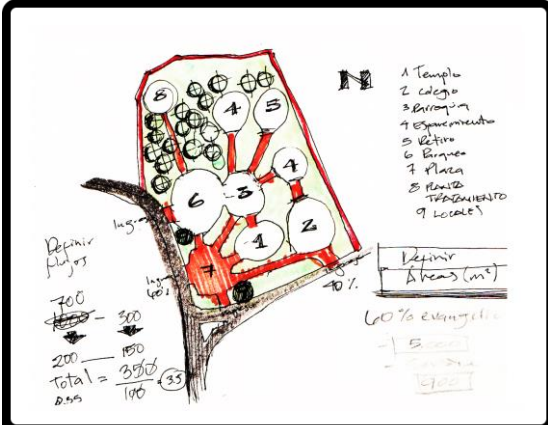 N
1 Templo
2 Colegio
3 Parroquia
4 Esparcimiento
5 Retiro
6 Parqueo
7 Plaza
8 PLANTA
TRATAMIENTO
9 LOCALES
8
4
5
4
6
3
2
1
7
Definir
flujos
700
300
200 — 150
Total = 350
100
3.5
0.55
40%
Definir
Áreas (m²)
60% evangelio
5.000
900